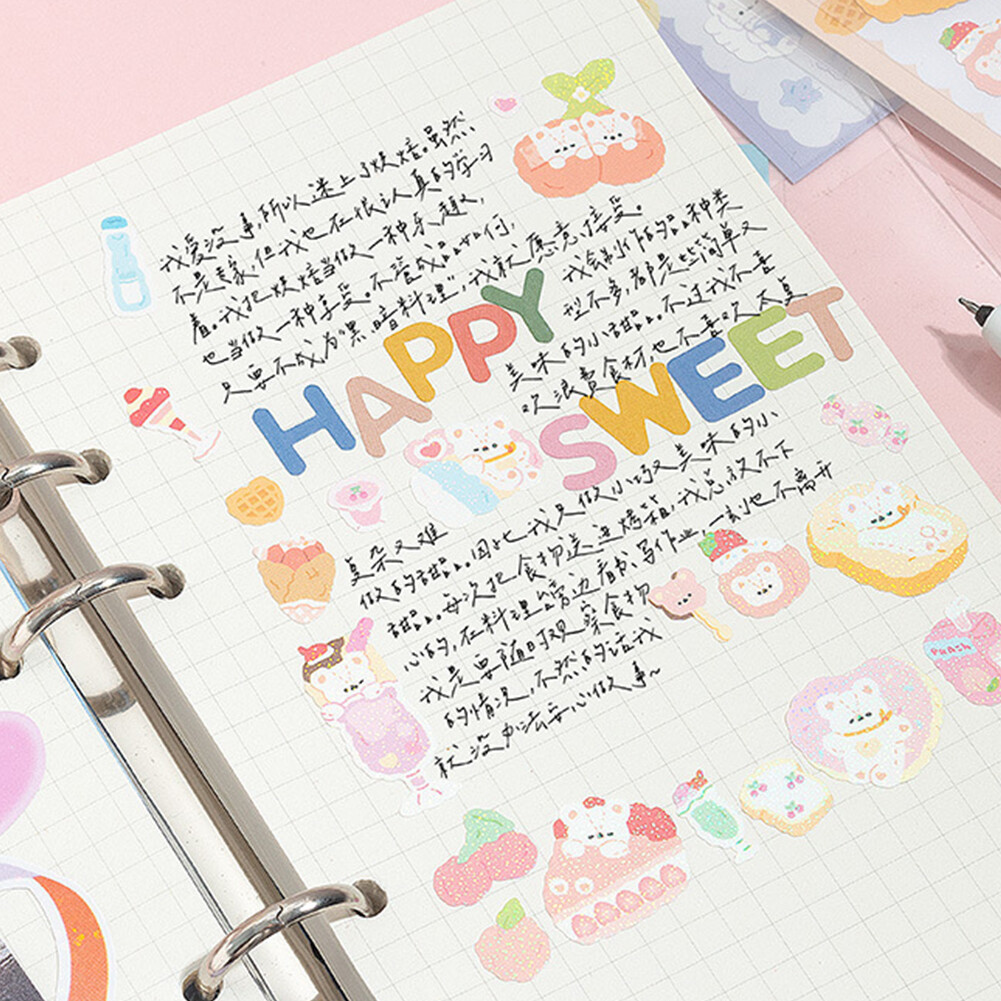 我爱没事,所以迷上了烘焙。虽然
不是专家,但我也在很认真的学习
着。我把烘焙当做一种乐趣,
也当做一种享受。不管成品如何,
只要不成为“黑暗料理”,我就愿意接受。
我会制作的品种类
型不多,都是些简单又
美味的小甜品。不过我不喜
欢浪费食材,也不喜欢太复
HAPPY
SWEET
复杂又难
做的甜品。因此我只做小巧又美味的小
甜品。每次把食物送进烤箱,我总放不下
心的,在料理旁边看书、写作业,一刻也不离开
我是要随时观察食物
的情况,不然的话我
就没办法安心做事~
PEACH